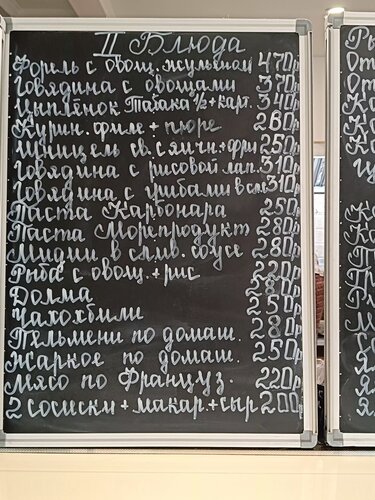 II Блюда
Форель с овощ. жульеном 470р
Говядина с овощами 370р
Цыплёнок Табака ½ + карт. 340р
Курин. филе + пюре
Шницель св. с яичн + фри 250р
Говядина с рисовой лап. 310р
Говядина с грибами в 310
Паста Карбонара 250р
Паста Морепродукт 280р
Мидии в слив. соусе 280р
Рыба с овощ. + рис 220р
Долма
Чахохбили 250
Пельмени по домаш. 280
Жаркое по домаш. 250р
Мясо по Француз. 220р
2 сосиски + макар. + сыр 200